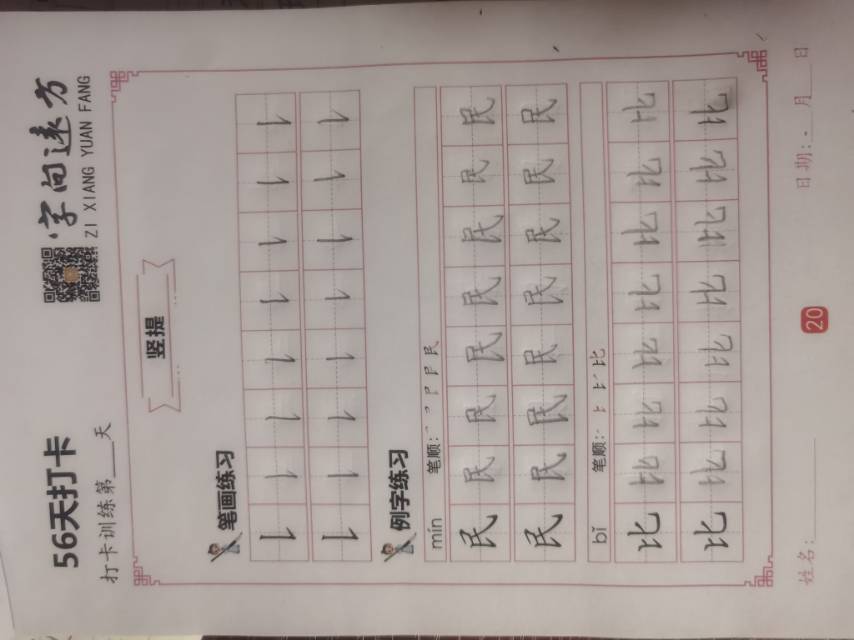 56天打卡
字向远方
打卡训练第___天
ZI XIANG YUAN FANG
竖提
笔画练习
例字练习
mín 笔顺:
民 民 民 民 民 民 民 民
民 民 民 民 民 民 民 民
bǐ 笔顺:
比 比 比 比 比 比 比 比
比 比 比 比 比 比 比 比
姓名:______ 20 日期:___月___日